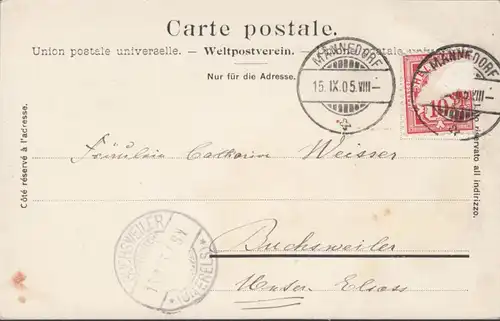 Carte postale.
Union postale universelle. — Weltpostverein. — Unione postale
Nur für die Adresse.
MÄNNEDORF
15.IX.05.VIII—
MÄNNEDORF
10
Côté réservé à l'adresse.
riservato all indirizzo.
Fräulein Catharina Weisser
BUCHSWEILER
(UNTERELS.)
Buchsweiler
Unter Elsass